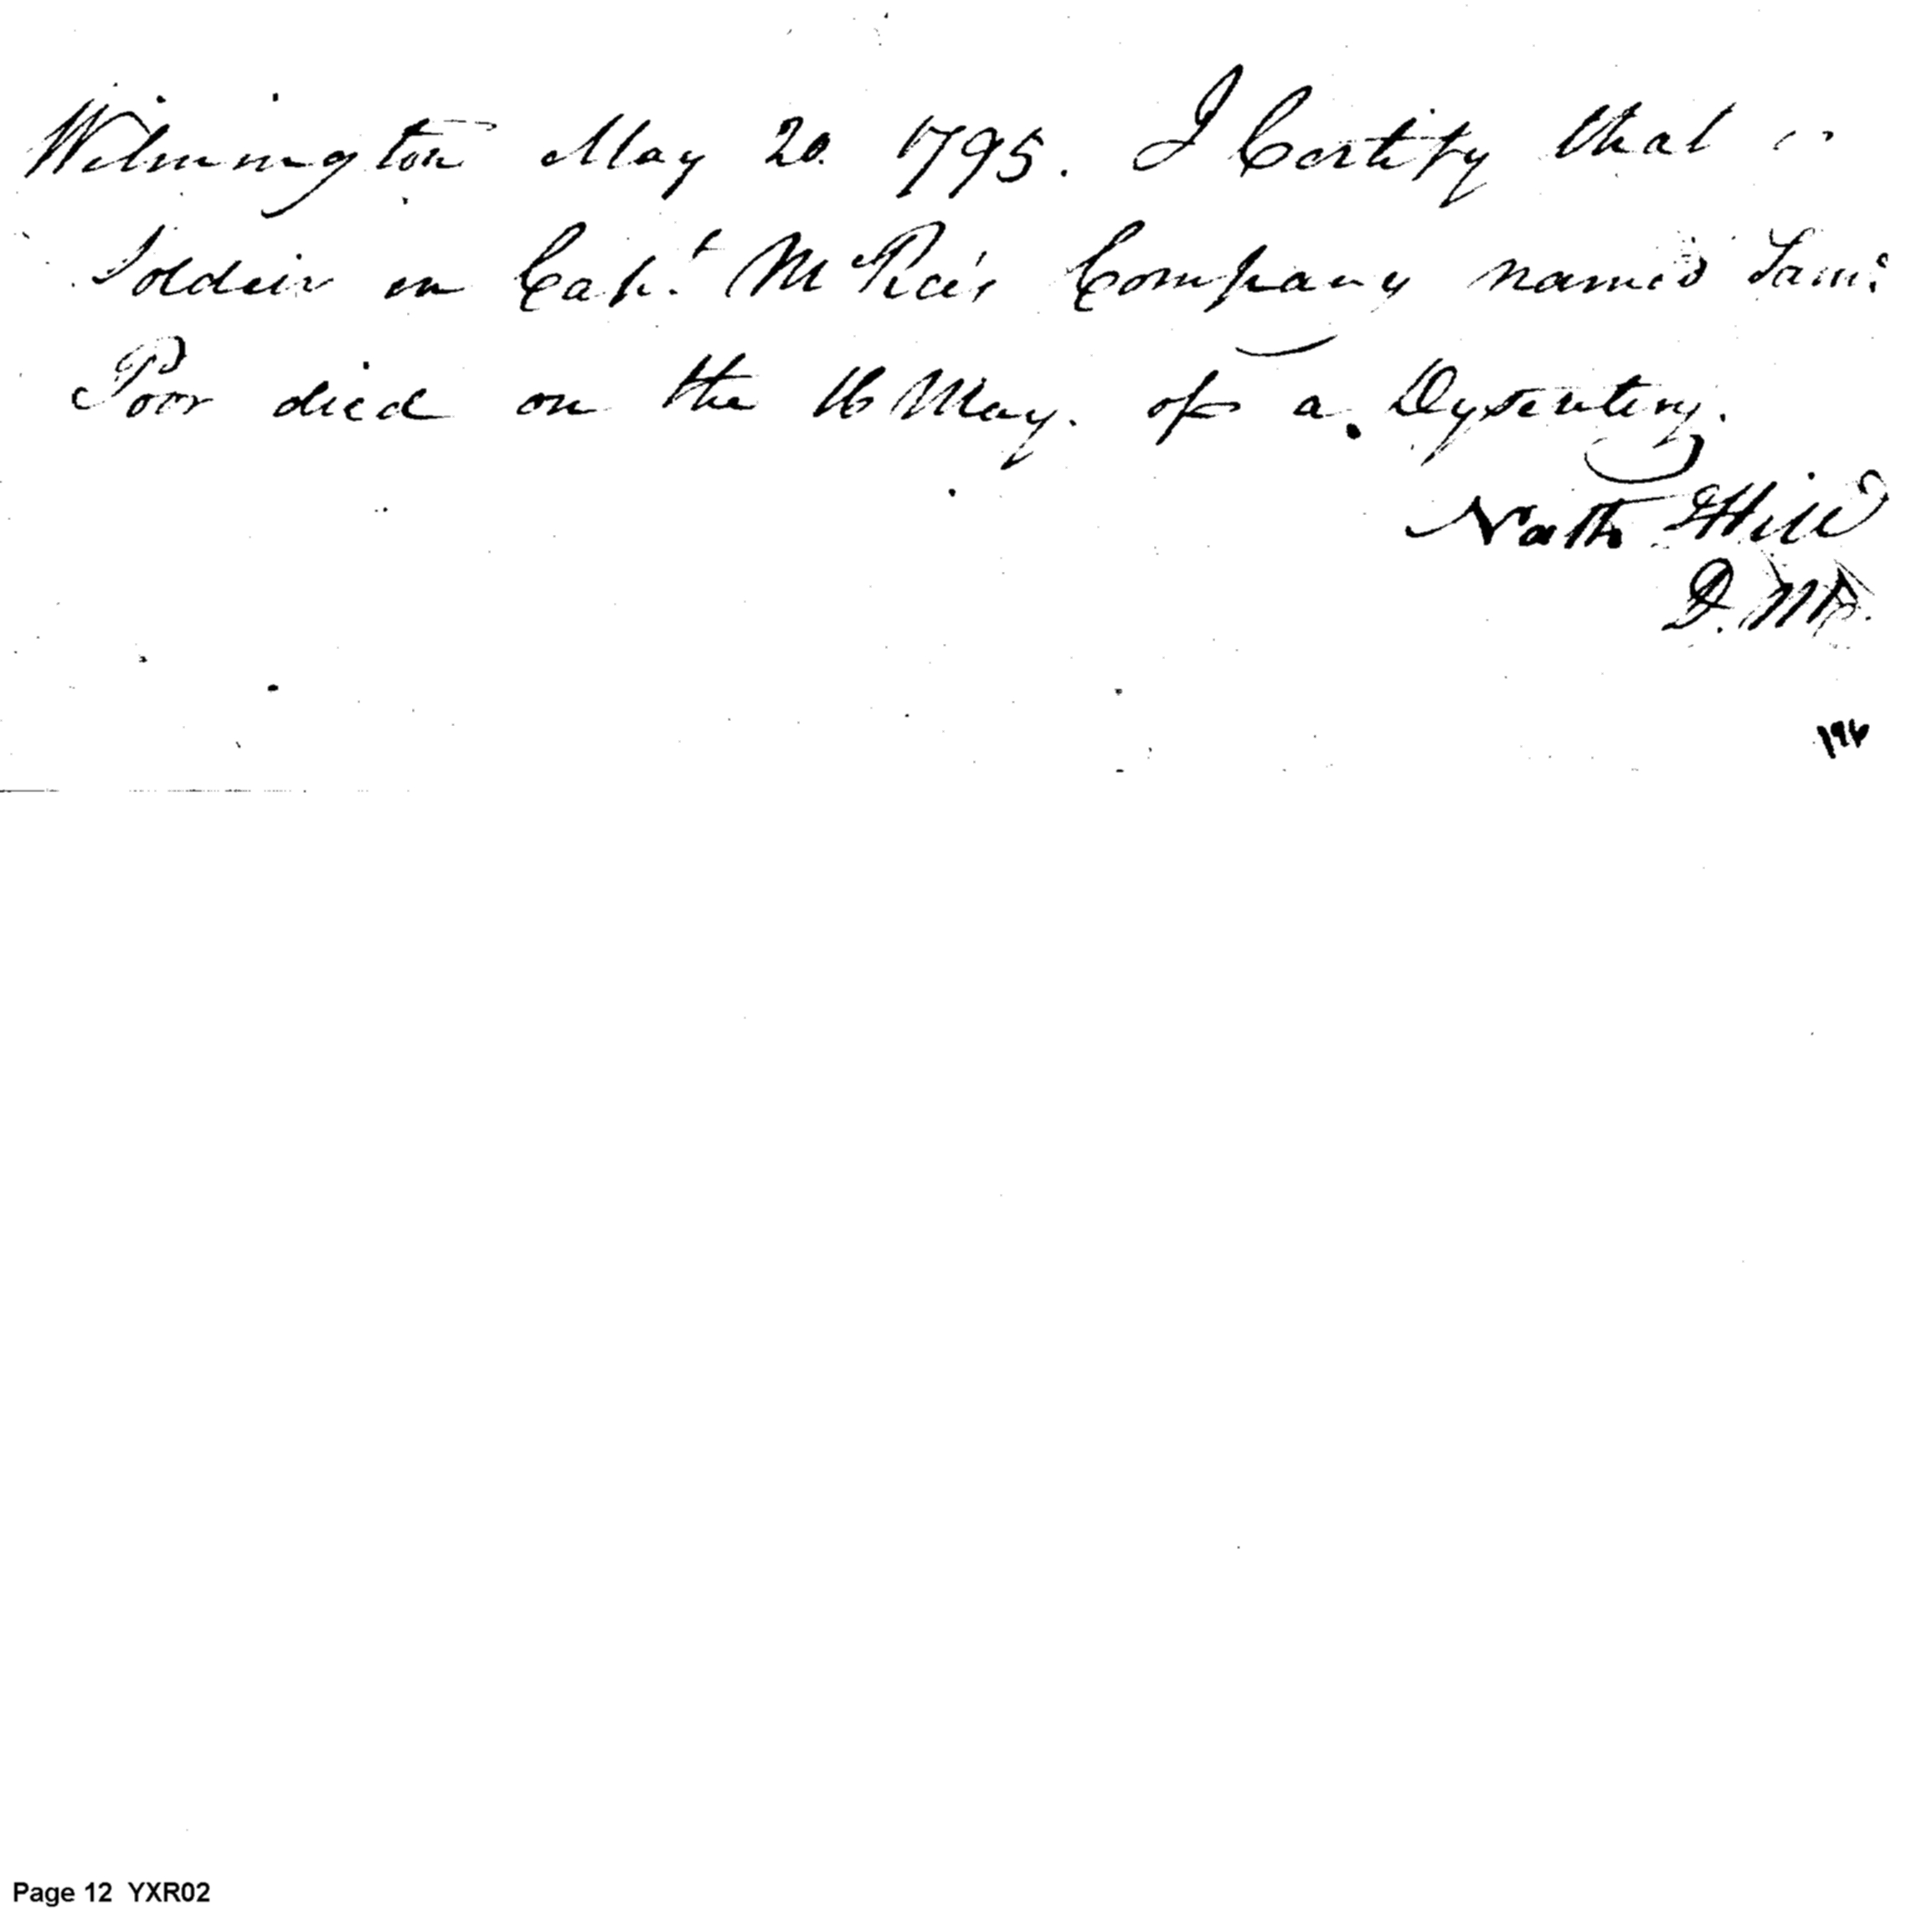 Wilmington May 20. 1795. I Certify that a
Soldier in Capt. M Rea's Company named Saml
Poor died on the 16 May. of a Dysentery.
Nath Hill
D. M
196
Page 12 YXR02